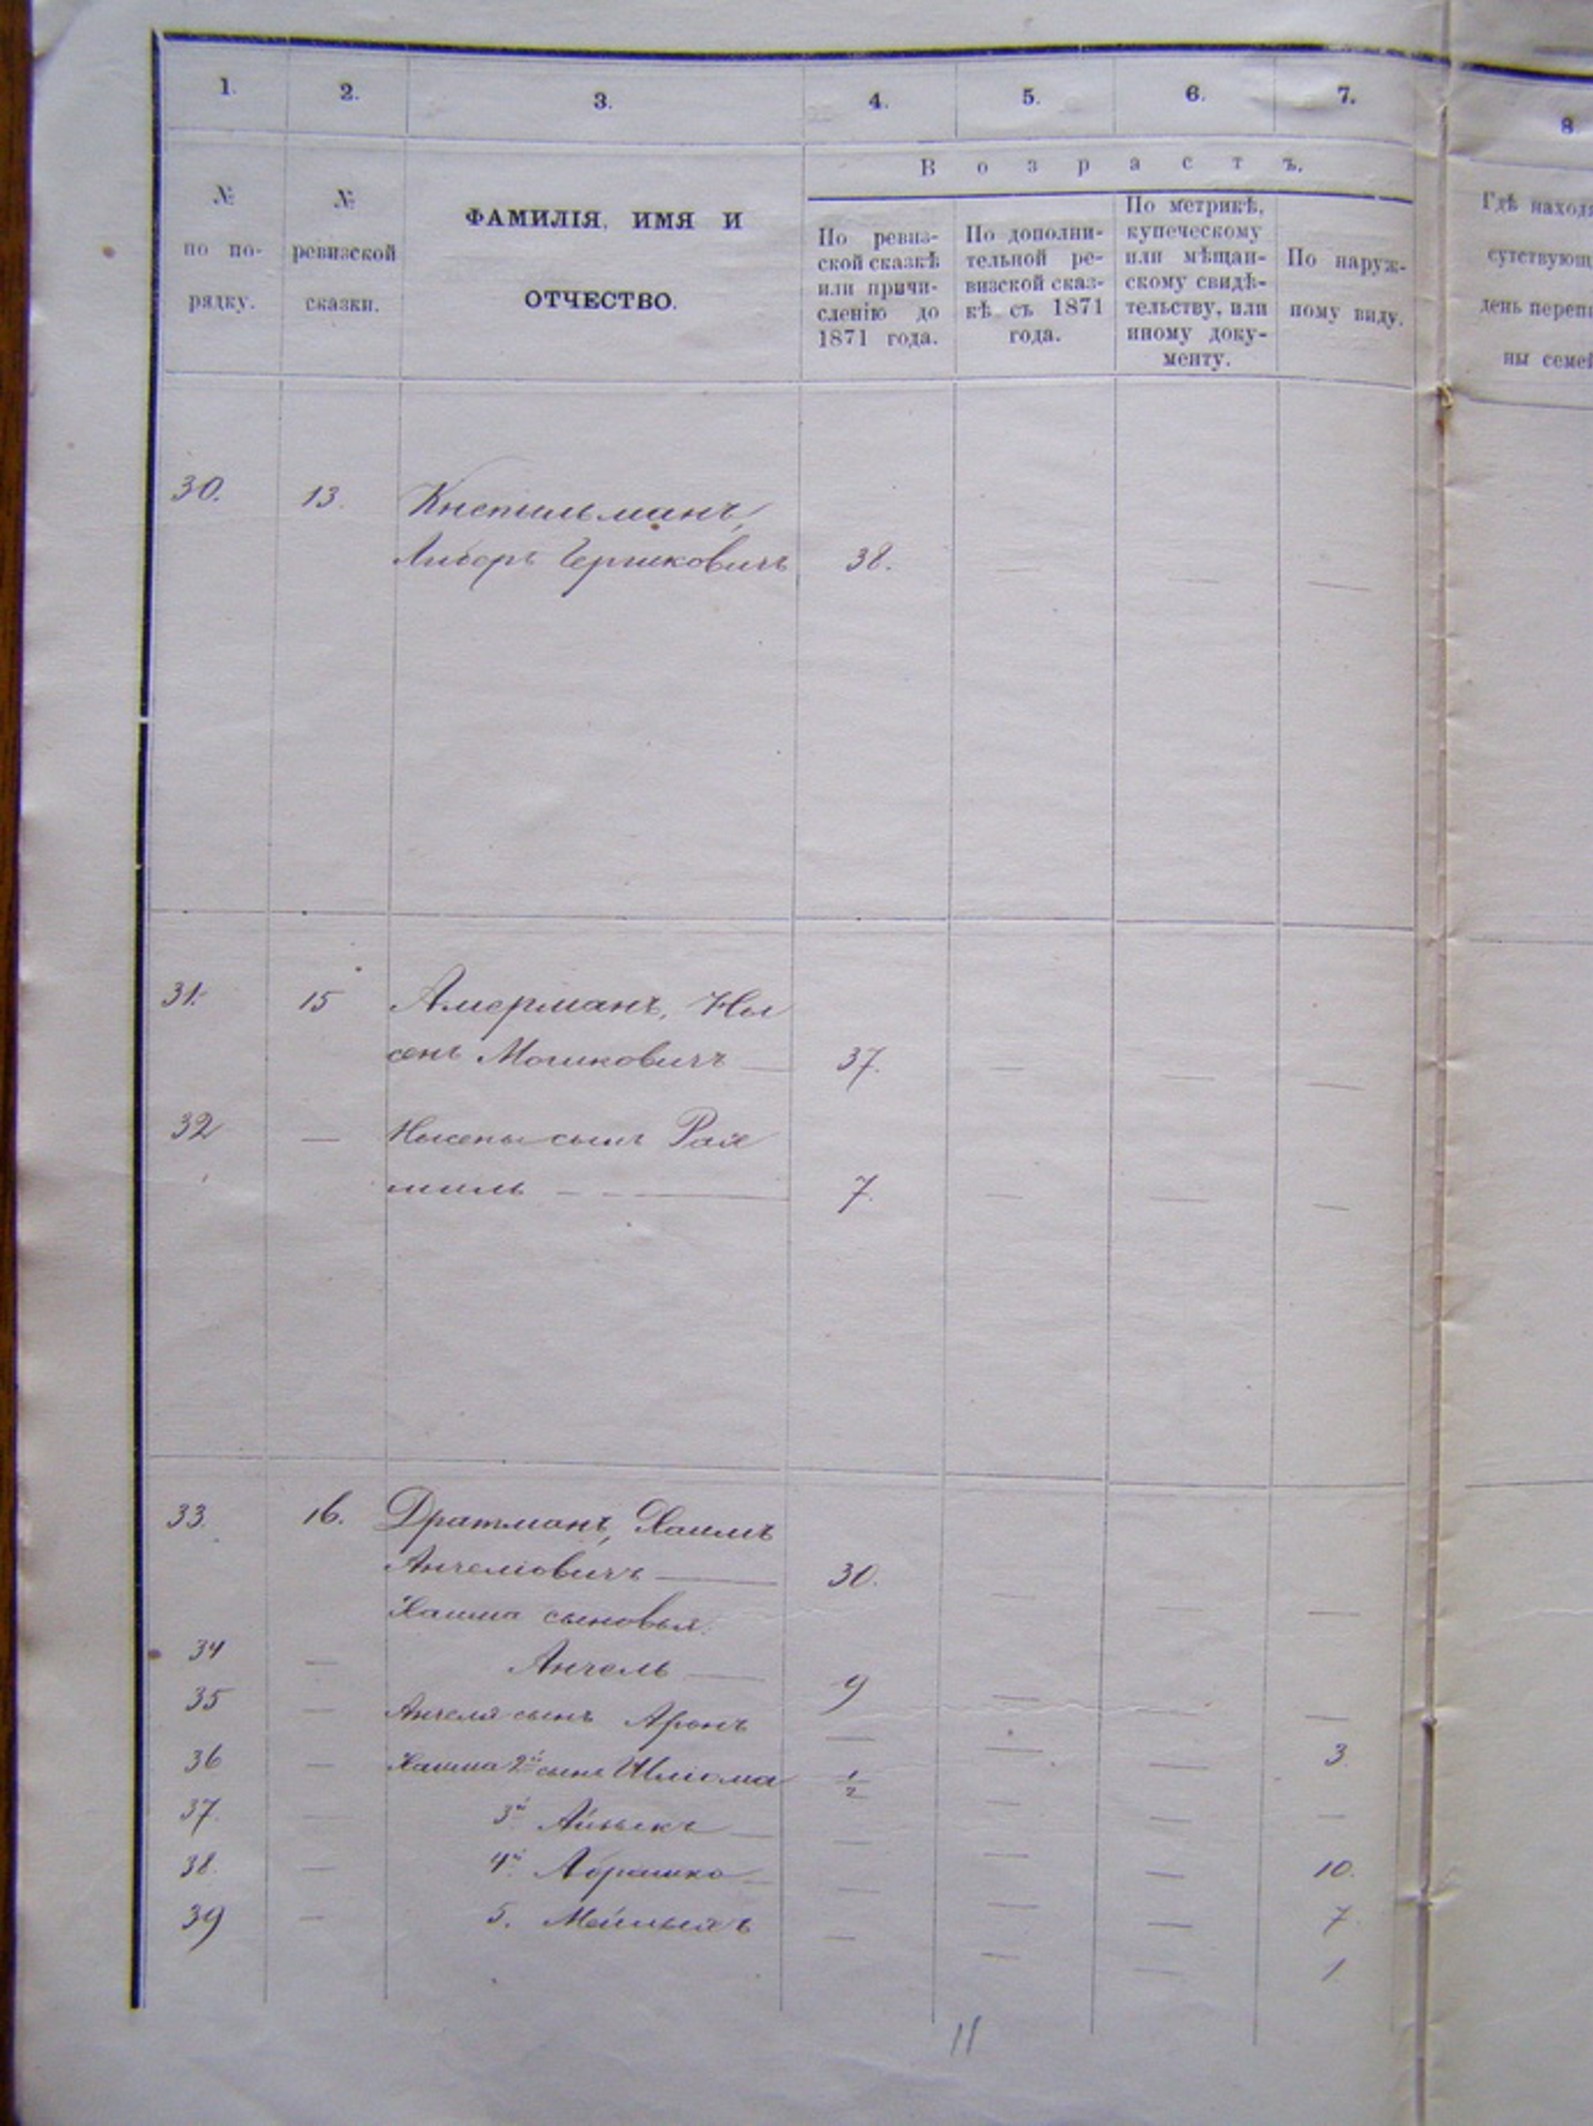 1. 2. 3. 4. 5. 6. 7. 8
В о з р а с т ъ.
№ по по-
рядку.
№ ревизской
сказки.
ФАМИЛІЯ, ИМЯ И
ОТЧЕСТВО.
По ревиз-
ской сказкѣ
или причи-
сленію до
1871 года.
По дополни-
тельной ре-
визской сказ-
кѣ съ 1871
года.
По метрикѣ,
купеческому
или мѣщан-
скому свидѣ-
тельству, или
иному доку-
менту.
По наруж-
ному виду.
Гдѣ наход
сутствующ
день переп
ны семе
30. 13. Кнепильманъ,
Гершковичъ 38. — — —
31. 15 Амерманъ, Ны
сенъ Мошковичъ — 37. — — —
32 — Нысены сынъ Рах
миль — 7. — — —
33. 16. Дратманъ, Хаимъ
Анчеліовичъ — 30. — — —
Хаима сыновья:
34 — Анчель — 9 — — —
35 — Анчеля сынъ Аронъ — — — 3.
36 — Хаима 2й сынъ Шліома 1/2 — — —
37. — 3й Айзыкъ — — — — 10.
38. — 4й Абрашко — — — — 7
39 — 5. — — — 1
11